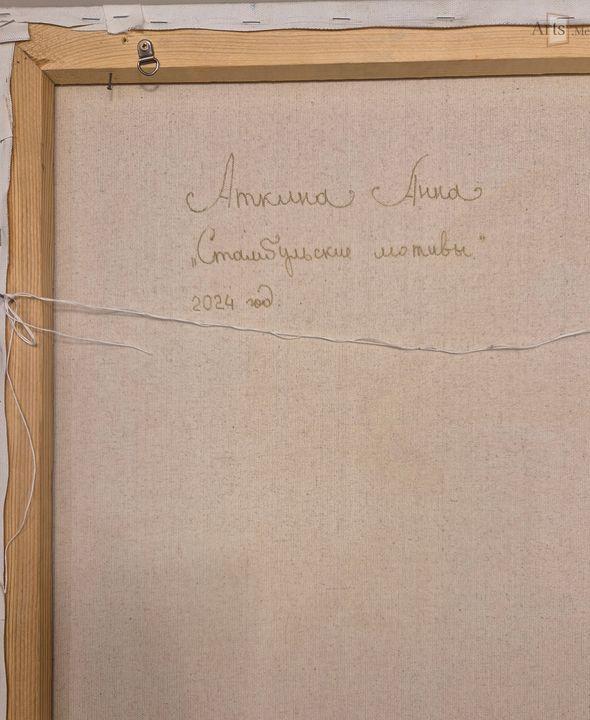 Arts .Me
Аткина Анна
„Стамбульские мотивы"
2024 год.